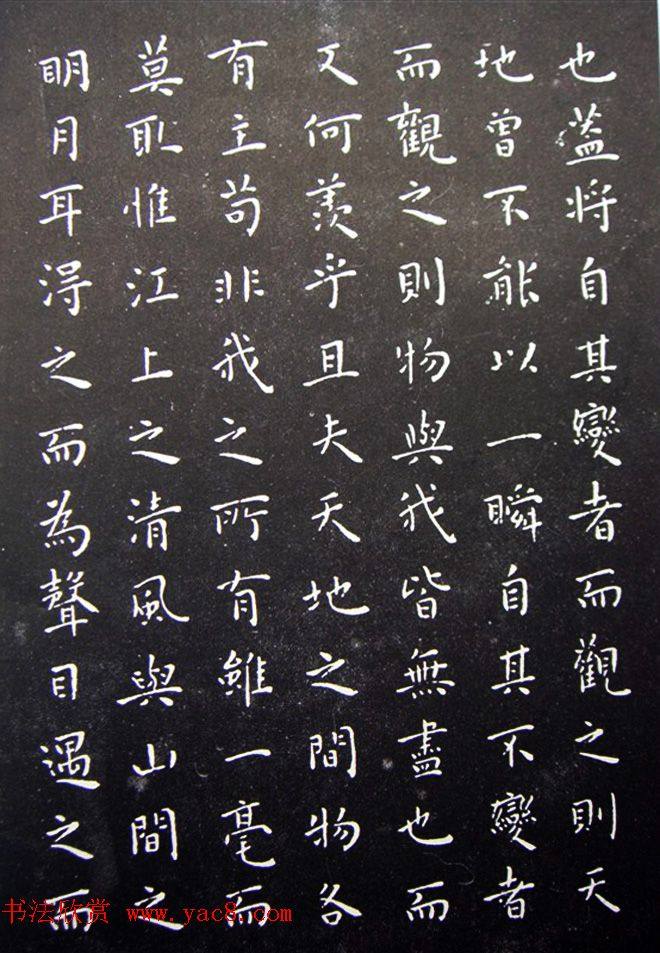 也蓋將自其變者而觀之則天
地曾不能以一瞬自其不變者
而觀之則物與我皆無盡也而
又何羨乎且夫天地之間物各
有主苟非我之所有雖一毫而
莫取惟江上之清風與山間之
明月耳得之而為聲目遇之而
书法欣赏 www.yac8.com